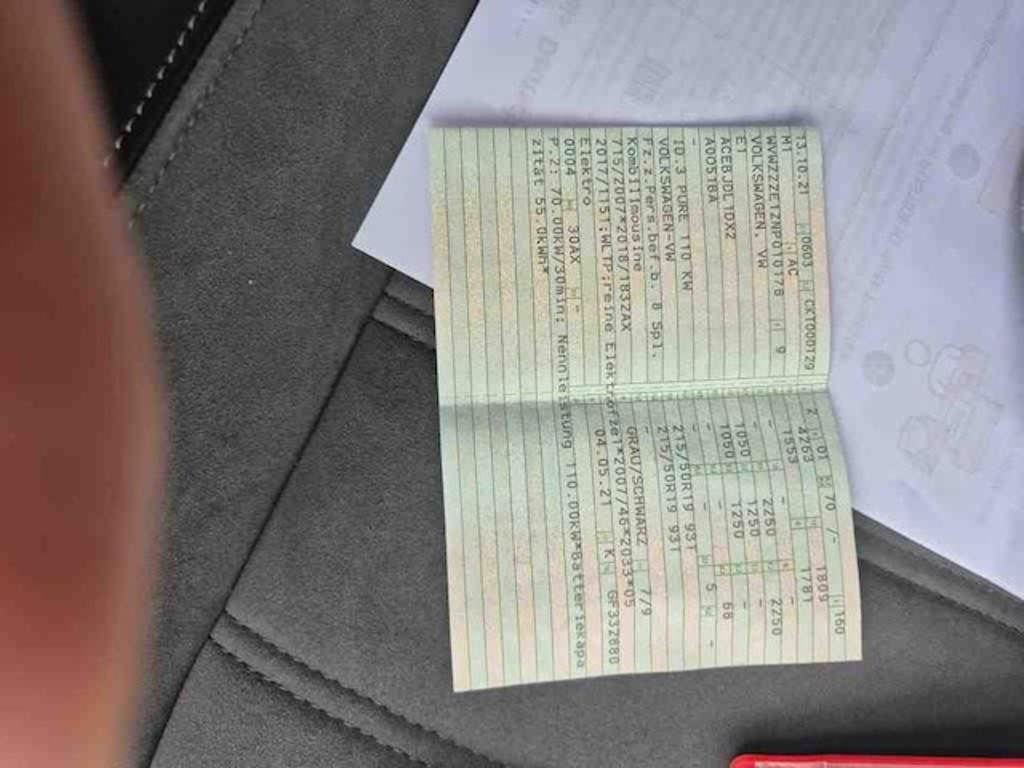 13.10.21 0603 CKT000129
M1 AC
WVWZZZE1ZNP010178 9
VOLKSWAGEN, VW
E1
ACEBJDL1DX2
A005TBA
-
ID.3 PURE 110 KW
VOLKSWAGEN-VW
Fz.z.Pers.bef.b. 8 Spl.
Kombilimousine
715/2007*2018/1832AX
2017/1151;WLTP;reine Elektrofz
Elektro
0004 30AX -
P.2: 70.00KW/30min; Nennleistung 110.00KW*Batteriekapa
zität 55.0KWh*
2 01 70 /- 160
4263 1809
1553 1781
- - -
- 2250 2250
- 1250 -
1050 1250 -
1050 - 68
- - 5 -
- 215/50R19 93T
215/50R19 93T
-
GRAU/SCHWARZ 7/9
e1*2007/46*2033*05
04.05.21 K GF332880